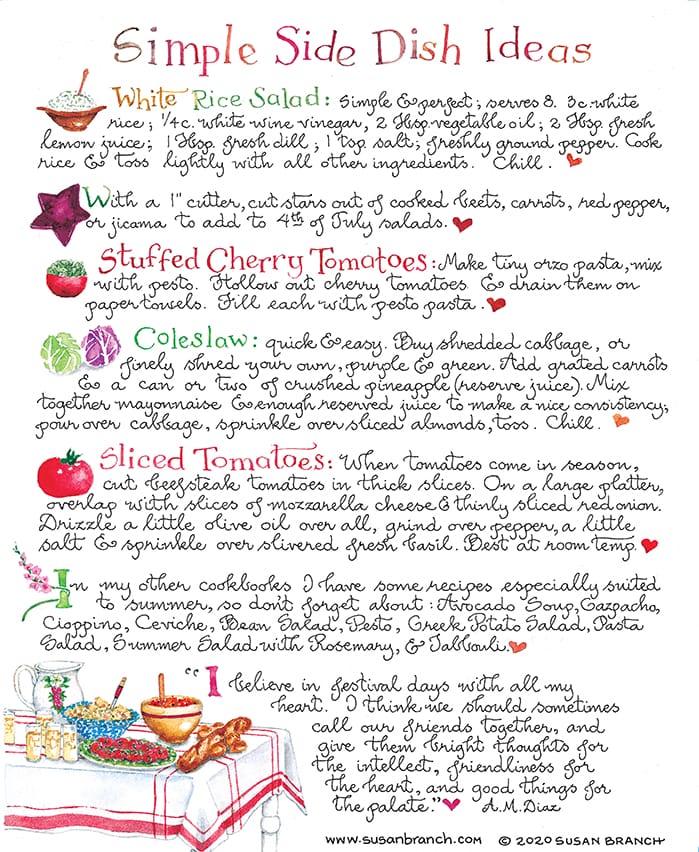 Simple Side Dish Ideas
White Rice Salad: Simple & perfect; serves 8. 3c. white
rice; 1/4c. white wine vinegar, 2 Tbsp. vegetable oil; 2 Tbsp. fresh
lemon juice; 1 Tbsp. fresh dill; 1 tsp salt; freshly ground pepper. Cook
rice & toss lightly with all other ingredients. Chill.
With a 1" cutter, cut stars out of cooked beets, carrots, red pepper,
or jicama to add to 4th of July salads.
Stuffed Cherry Tomatoes: Make tiny orzo pasta, mix
with pesto. Hollow out cherry tomatoes & drain them on
paper towels. Fill each with pesto pasta.
Coleslaw: quick & easy. Buy shredded cabbage, or
finely shred your own, purple & green. Add grated carrots
& a can or two of crushed pineapple (reserve juice). Mix
together mayonnaise & enough reserved juice to make a nice consistency;
pour over cabbage, sprinkle over sliced almonds, toss. Chill.
Sliced Tomatoes: When tomatoes come in season,
cut beefsteak tomatoes in thick slices. On a large platter,
overlap with slices of mozzarella cheese & thinly sliced red onion.
Drizzle a little olive oil over all, grind over pepper, a little
salt & sprinkle over slivered fresh basil. Best at room temp.
In my other cookbooks I have some recipes especially suited
to summer, so don't forget about: Avocado Soup, Gazpacho,
Cioppino, Ceviche, Bean Salad, Pesto, Greek Potato Salad, Pasta
Salad, Summer Salad with Rosemary, & Tabbouli.
"I believe in festival days with all my
heart. I think we should sometimes
call our friends together, and
give them bright thoughts for
the intellect, friendliness for
the heart, and good things for
the palate." A.M. Diaz
www.susanbranch.com © 2020 SUSAN BRANCH